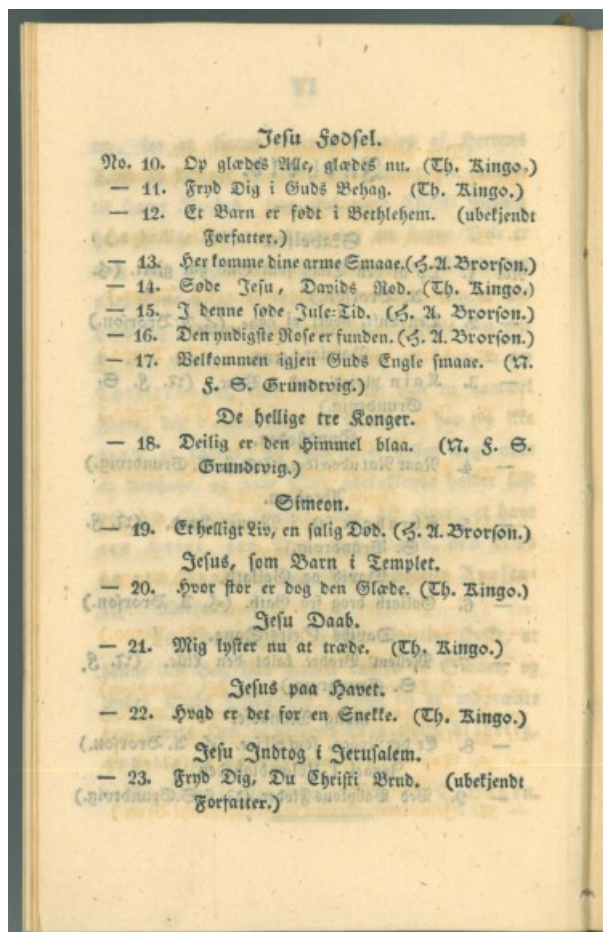 Jesu Fødsel.
No. 10. Op glædes Alle, glædes nu. (Th. Kingo.)
— 11. Fryd Dig i Guds Behag. (Th. Kingo.)
— 12. Et Barn er født i Bethlehem. (ubekjendt
Forfatter.)
— 13. Her komme dine arme Smaae. (H. A. Brorson.)
— 14. Søde Jesu, Davids Rod. (Th. Kingo.)
— 15. I denne søde Jule-Tid. (H. A. Brorson.)
— 16. Den yndigste Rose er funden. (H. A. Brorson.)
— 17. Velkommen igjen Guds Engle smaae. (N.
F. S. Grundtvig.)
De hellige tre Konger.
— 18. Deilig er den Himmel blaa. (N. F. S.
Grundtvig.)
Simeon.
— 19. Et helligt Liv, en salig Død. (H. A. Brorson.)
Jesus, som Barn i Templet.
— 20. Hvor stor er dog den Glæde. (Th. Kingo.)
Jesu Daab.
— 21. Mig lyster nu at træde. (Th. Kingo.)
Jesus paa Havet.
— 22. Hvad er det for en Snekke. (Th. Kingo.)
Jesu Indtog i Jerusalem.
— 23. Fryd Dig, Du Christi Brud. (ubekjendt
Forfatter.)